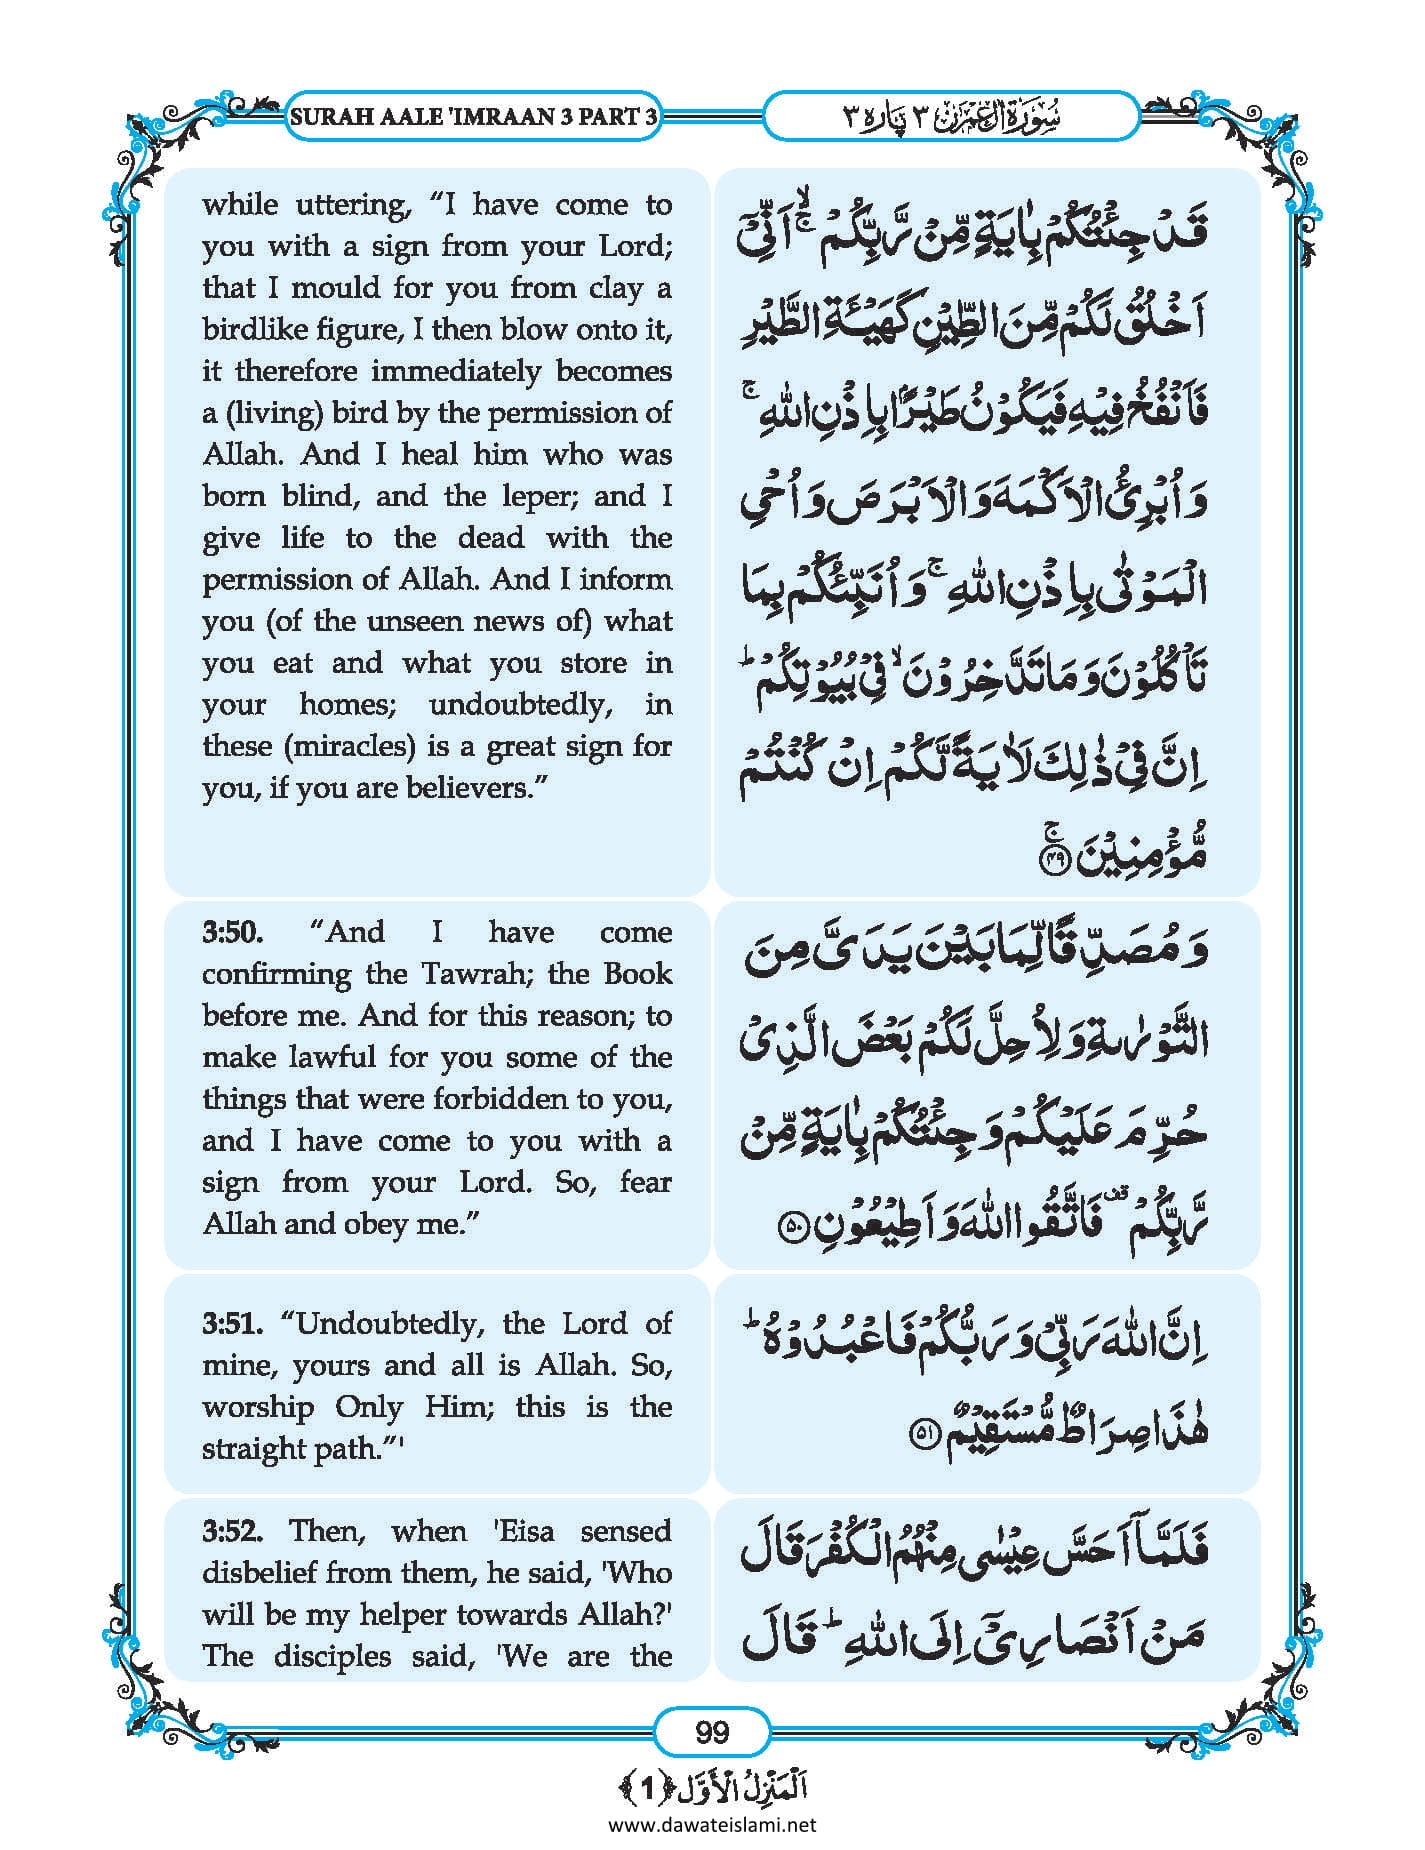 SURAH AALE 'IMRAAN 3 PART 3
سُوْرَةُ اٰلِ عِمْرٰن ٣ پَارہ ٣
while uttering, “I have come to
you with a sign from your Lord;
that I mould for you from clay a
birdlike figure, I then blow onto it,
it therefore immediately becomes
a (living) bird by the permission of
Allah. And I heal him who was
born blind, and the leper; and I
give life to the dead with the
permission of Allah. And I inform
you (of the unseen news of) what
you eat and what you store in
your homes; undoubtedly, in
these (miracles) is a great sign for
you, if you are believers.”
قَدْ جِئْتُكُمْ بِاٰیَةٍ مِّنْ رَّبِّكُمْ ۙۚ اَنِّیْۤ
اَخْلُقُ لَكُمْ مِّنَ الطِّیْنِ كَهَیْــٴَـةِ الطَّیْرِ
فَاَنْفُخُ فِیْهِ فَیَكُوْنُ طَیْرًۢا بِاِذْنِ اللّٰهِ ۚ
وَ اُبْرِئُ الْاَكْمَهَ وَ الْاَبْرَصَ وَ اُحْیِ
الْمَوْتٰى بِاِذْنِ اللّٰهِ ۚ وَ اُنَبِّئُكُمْ بِمَا
تَاْكُلُوْنَ وَ مَا تَدَّخِرُوْنَ ۙ فِیْ بُیُوْتِكُمْ ؕ
اِنَّ فِیْ ذٰلِكَ لَاٰیَةً لَّكُمْ اِنْ كُنْتُمْ
مُّؤْمِنِیْنَ ۚ ﴿۴۹﴾
3:50. “And I have come
confirming the Tawrah; the Book
before me. And for this reason; to
make lawful for you some of the
things that were forbidden to you,
and I have come to you with a
sign from your Lord. So, fear
Allah and obey me.”
وَ مُصَدِّقًا لِّمَا بَیْنَ یَدَیَّ مِنَ
التَّوْرٰىةِ وَ لِاُحِلَّ لَكُمْ بَعْضَ الَّذِیْ
حُرِّمَ عَلَیْكُمْ وَ جِئْتُكُمْ بِاٰیَةٍ مِّنْ
رَّبِّكُمْ ۫ فَاتَّقُوا اللّٰهَ وَ اَطِیْعُوْنِ ﴿۵۰﴾
3:51. “Undoubtedly, the Lord of
mine, yours and all is Allah. So,
worship Only Him; this is the
straight path.”'
اِنَّ اللّٰهَ رَبِّیْ وَ رَبُّكُمْ فَاعْبُدُوْهُ ؕ
هٰذَا صِرَاطٌ مُّسْتَقِیْمٌ ﴿۵۱﴾
3:52. Then, when 'Eisa sensed
disbelief from them, he said, 'Who
will be my helper towards Allah?'
The disciples said, 'We are the
فَلَمَّاۤ اَحَسَّ عِیْسٰى مِنْهُمُ الْكُفْرَ قَالَ
مَنْ اَنْصَارِیْۤ اِلَى اللّٰهِ ؕ قَالَ
99
اَلْمَنْزِلُ الْاَوَّل ﴿1﴾
www.dawateislami.net